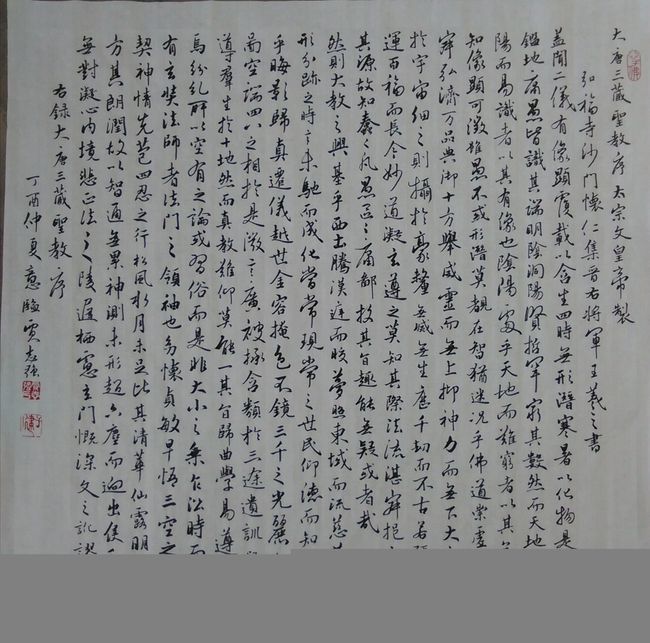 大唐三藏聖教序 太宗文皇帝製
弘福寺沙門懷仁集晉右將軍王羲之書
蓋聞二儀有像顯覆載以含生四時無形潛寒暑以化物是
鑑地庸愚皆識其端明陰洞陽賢哲罕窮其數然而天地
陽而易識者以其有像也陰陽處乎天地而難窮者以其
知像顯可徵雖愚不惑形潛莫覩在智猶迷況乎佛道崇虛
寂弘濟万品典御十方舉威靈而無上抑神力而無下大
於宇宙細之則攝於豪釐無滅無生歷千劫而不古若
運百福而長今妙道凝玄遵之莫知其際法流湛寂挹
其源故知蠢蠢凡愚區區庸鄙投其旨趣能無疑或者哉
然則大教之興基乎西土騰漢庭而皎夢照東域而流慈
形分跡之時言未馳而成化當常現常之世民仰德而知
乎晦影歸真遷儀越世金容掩色不鏡三千之光麗
而空端四八之相於是微言廣被拯含類於三途遺訓
導羣生於十地然而真教難仰莫能一其旨歸曲學易遵
焉紛糺所以空有之論或習俗而是非大小之乘乍沿時而
有玄奘法師者法門之領袖也幼懷貞敏早悟三空之
契神情先苞四忍之行松風水月未足比其清華仙露明
方其朗潤故以智通無累神測未形超六塵而迥出隻
無對凝心內境悲正法之陵遲栖慮玄門慨深文之訛謬
右錄大唐三藏聖教序
丁酉仲夏意臨賈志強